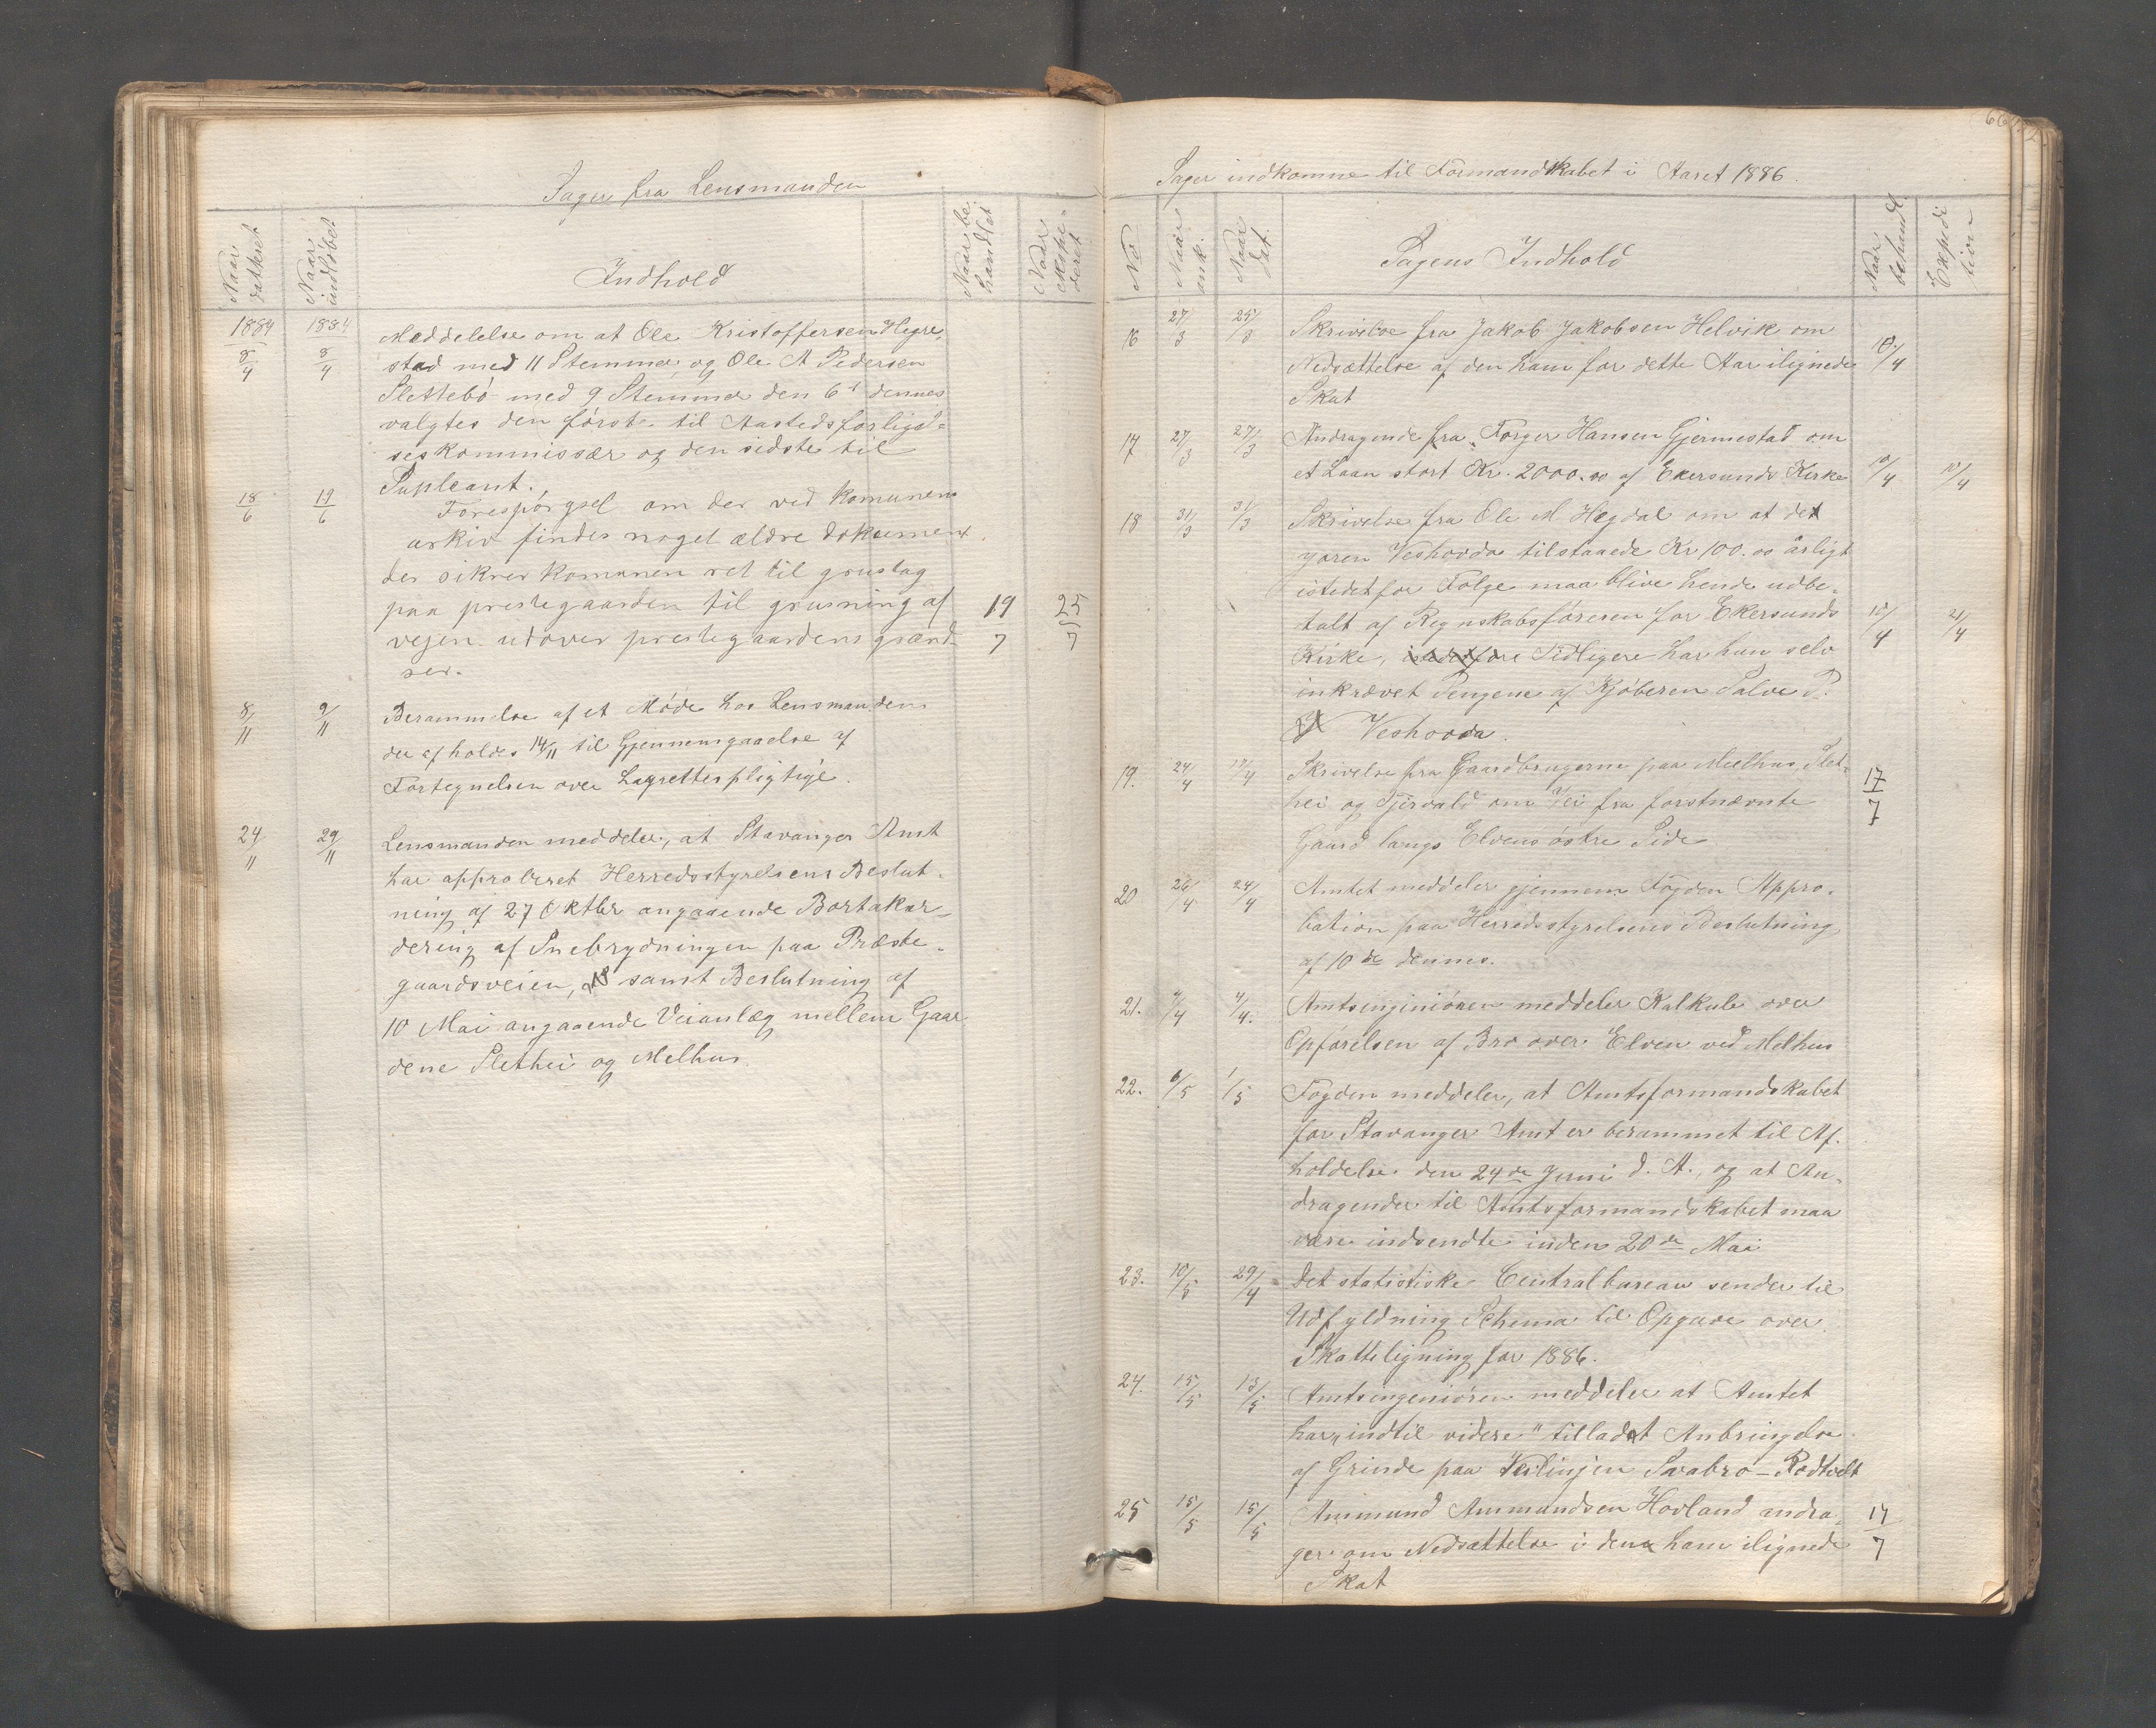 Sager fra Lensmanden
Naar datheret
Naar indløbet
Indhold
Naar behandlet
Naar ekspederet
1884 1884
8/4 8/4 Meddelelse om at Ole Kristoffersen Hegre,
stad med 11 Stemmer, og Ole A Pedersen
Slettebö med 9 Stemmer den 6te dennes
valgtes den först. til Aastedsforligel=
seskommissær og den sidste til
Supleant.
18/6 19/6 Forespörgsel om der ved Komunens
arkiv findes noget ældre dokument
der sikrer Komunen ret til grustag
paa prestegaarden til grusning af 19/7 25/7
vejen udover prestegaardens grænd-
ser.
8/11 9/11 Berammelse af et Möde hos Lensmanden
der afholdes 14/11 til Gjennemgaaelse af
Fortegnelsen over Lagrettespligtige.
24/11 29/11 Lensmanden meddeler, at Stavanger Amt
har approberet Herredsstyrelsens Beslut-
ning af 27 Oktbr angaaende Bortakor-
dering af Snebrydningen paa Præste-
gaardsveien, samt Beslutning af
10 Mai angaaende Veianlæg mellem Gaar
dene Slethei og Melhus.
Sager indkomne til Formandskabet i Aaret 1886.
No
Naar ank.
Naar dat.
Sagens Indhold
Naar behandl.
Expedition
16 27/3 25/3 Skrivelse fra Jakob Jakobsen Helvik om
Nedsættelse af den ham for dette Aar ilignede 10/4
Skat
17 27/3 27/3 Andragende fra Torger Hansen Gjermestad om
et Laan stort Kr. 2000.00 af Ekersunds Kirke 10/4 10/4
18 31/3 31/3 Skrivelse fra Ole M Hegdal om at det
Veshovda tilstaaede Kr 100.00 årligt
istedetfor Folge maa blive hende udbe-
talt af Regnskabsföreren for Ekersunds 10/4 21/4
Kirke, Tidligere har hun selv
inkrævet Pengene af Kjöberen Salve P.
Veshovda.
19. 24/4 17/4 Skrivelse fra Gaardbrugerne paa Melhus Slet-
hei og Tjirvald om Vei fra forstnævnte 17/7
Gaard langs Elvens östre Side
20 26/4 24/4 Amtet meddeler gjennem Fogden Appro-
bation paa Herredsstyrelsens Beslutning
af 10de dennes.
21. 4/4 4/4. Amtsinginiören meddeler Kalkule over
Opförelsen af Bro over Elven ved Melhus
22. 6/5 1/5 Fogden meddeler, at Amtsformandskabet
for Stavanger Amt er berammet til Af-
holdelse den 24de Juni d. A., og at An-
dragender til Amtsformandskabet maa
være indsendte inden 20de Mai
23. 10/5 29/4 Det statistiske Centralbureau sender til
Udfyldning Schema til Opgave over
Skatteligning for 1886.
24. 15/5 13/5 Amtsingeniören meddeler at Amtet
har „indtil videre" tilladt Anbringelse
af Grinde paa Veilinjen Svabro–Rodtvelt
25 15/5 15/5 Ammund Ammundsen Hovland andra- 17/7
ger om Nedsættelse i den ham ilignede
Skat